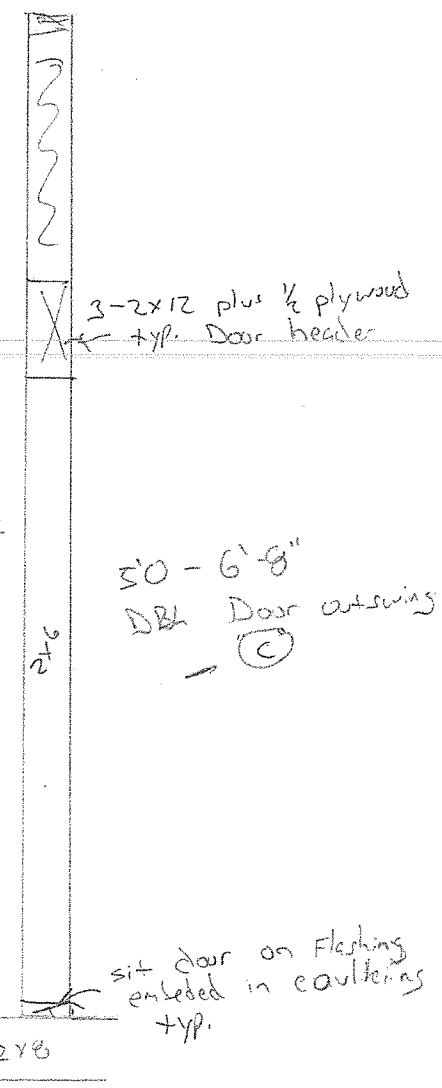 3-2x12 plus ½ plywood
typ. Door header
5'0 - 6'-8"
DBL Door outswing
"C"
2x6
sit door on Flashing
embeded in caulking
typ.
2x8